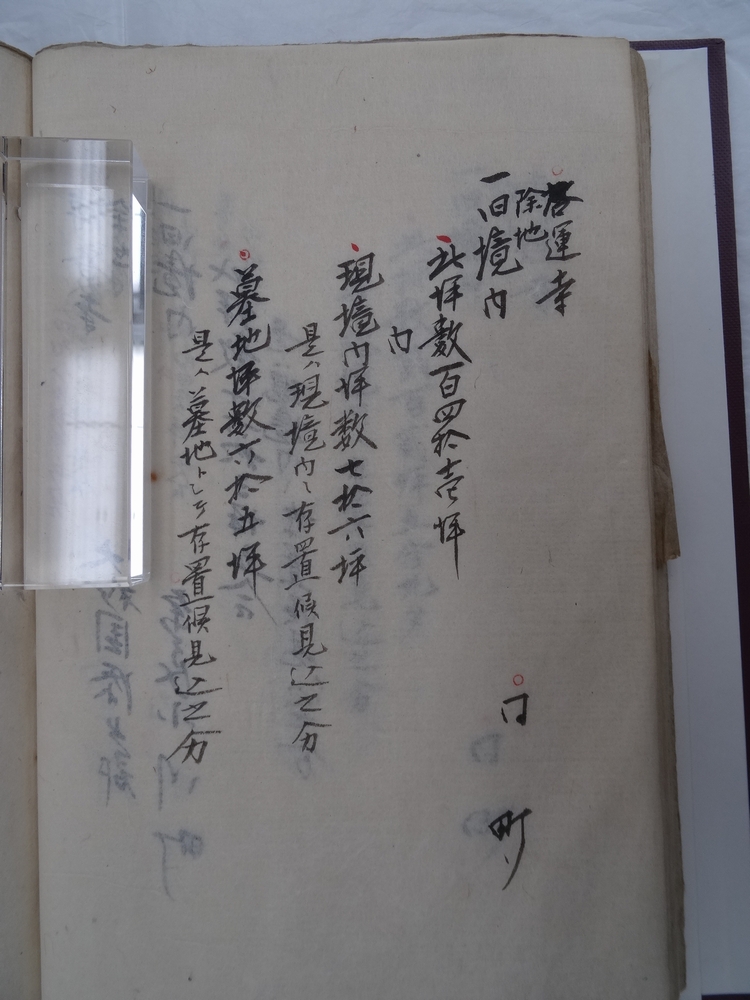 啓運寺
除地
一旧境内
同町
此坪数百四拾壱坪
内
現境内坪数七拾六坪
是ハ現境内ニ存置候見込之分
墓地坪数六拾五坪
是ハ墓地トシテ存置候見込之分